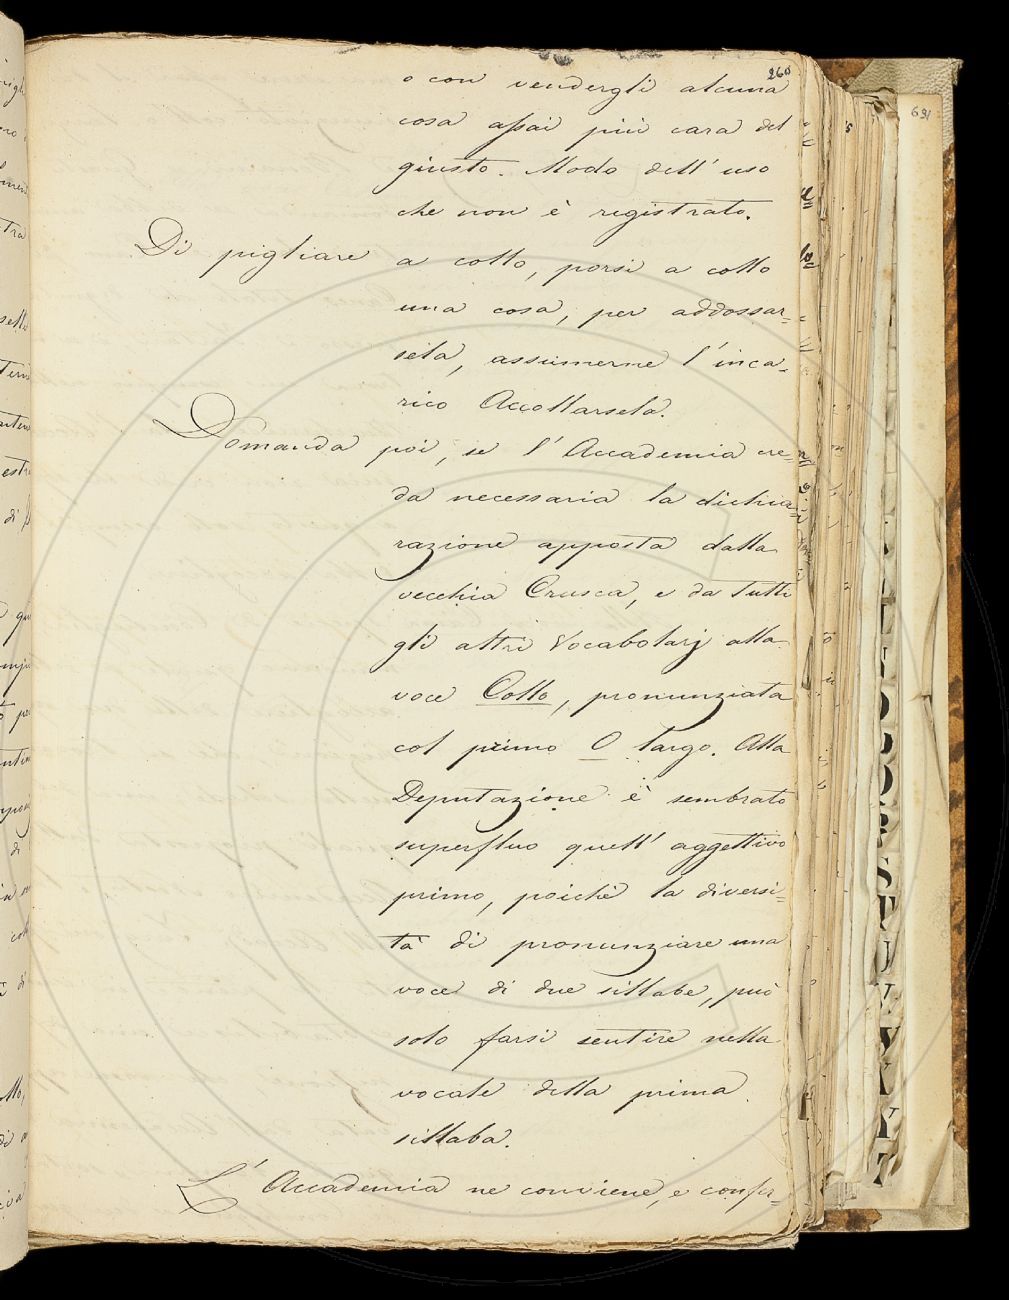 260
o con vendergli alcuna
cosa assai più cara del
giusto. Modo dell' uso
che non è registrato.
Di pigliare a collo, porsi a collo
una cosa, per addossar=
sela, assumerne l'inca=
rico Accollarsela.
Domanda poi, se l'Accademia cre=
da necessaria la dichia=
razione apposta dalla
vecchia Crusca, e da tutti
gli altri Vocabolarj alla
voce Collo, pronunziata
col primo O largo. Alla
Deputazione è sembrato
superfluo quell' aggettivo
primo, poichè la diversi=
tà di pronunziare una
voce di due sillabe, può
solo farsi sentire nella
vocale della prima
sillaba.
L' Accademia ne conviene, e confer=
691